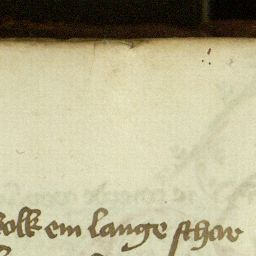 volk ein lange schar